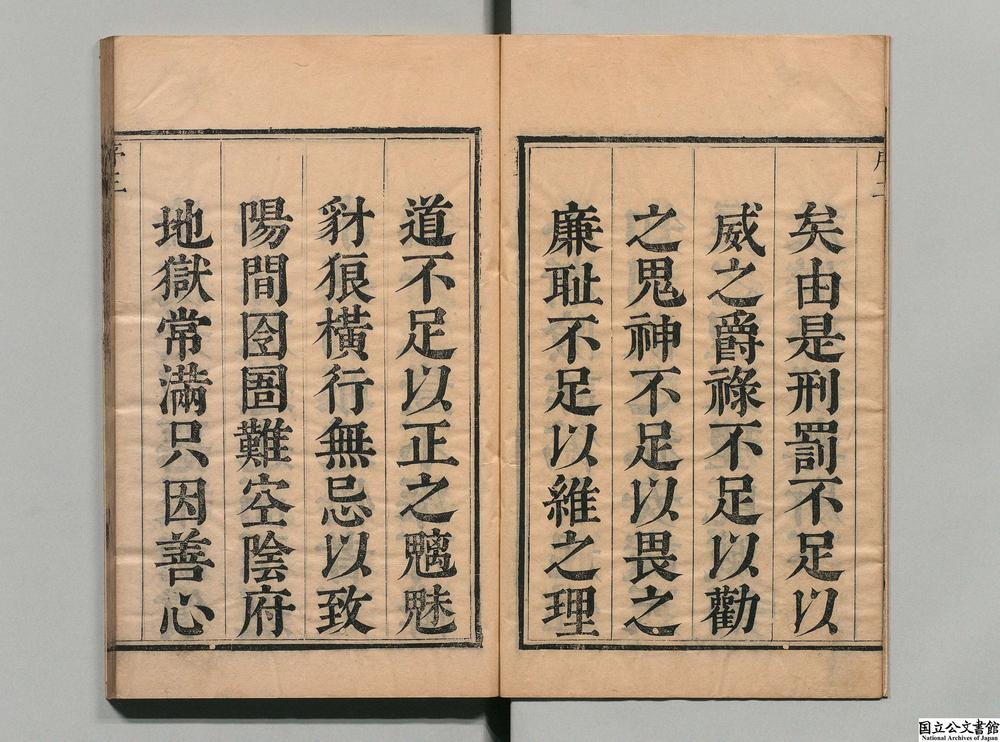 矣由是刑罰不足以
威之爵祿不足以勸
之鬼神不足以畏之
廉耻不足以維之理
道不足以正之魑魅
豺狼橫行無忌以致
陽間囹圄難空陰府
地獄常滿只因善心
国立公文書館
National Archives of Japan